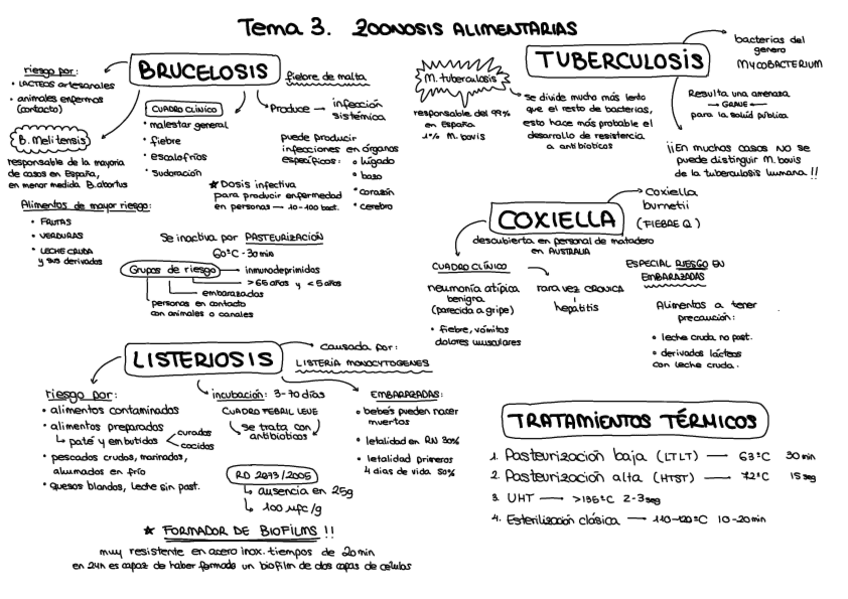 Tema 3. ZOONOSIS ALIMENTARIAS
BRUCELOSIS
fiebre de malta
riesgo por:
• LÁCTEOS artesanales
• animales enfermos
(contacto)
B. Melitensis
responsable de la mayoría
de casos en España,
en menor medida B. abortus
Alimentos de mayor riesgo:
• FRUTAS
• VERDURAS
• LECHE CRUDA
y sus derivados
CUADRO CLÍNICO
• malestar general
• fiebre
• escalofríos
• sudoración
Produce → infección
sistémica
puede producir
infecciones en órganos
específicos: • hígado
• bazo
• corazón
• cerebro
★ Dosis infectiva
para producir enfermedad
en personas → 10-100 bact.
Se inactiva por PASTEURIZACIÓN
60ºC - 30 min
Grupos de riesgo
inmunodeprimidos
>65 años y <5 años
embarazadas
personas en contacto
con animales o canales
TUBERCULOSIS
bacterias del
genero
MYCOBACTERIUM
M. tuberculosis
responsable del 99%
en España
1% M. bovis
se divide mucho más lento
que el resto de bacterias,
esto hace más probable el
desarrollo de resistencia
a antibióticos
Resulta una amenaza
→ GRAVE ←
para la salud pública
¡¡En muchos casos NO se
puede distinguir M. bovis
de la tuberculosis humana!!
COXIELLA
Coxiella
burnetii
(FIEBRE Q)
descubierta en personal de matadero
en AUSTRALIA
CUADRO CLÍNICO
neumonía atípica
benigna
(parecida a gripe)
• fiebre, vómitos
dolores musculares
rara vez CRONICA
hepatitis
ESPECIAL RIESGO EN
EMBARAZADAS
Alimentos a tener
precaución:
• leche cruda no past.
• derivados lácteos
con leche cruda.
LISTERIOSIS
causada por:
LISTERIA MONOCYTOGENES
riesgo por:
• alimentos contaminados
• alimentos preparados
↳ paté y embutidos < curados
cocidos
• pescados crudos, marinados,
ahumados en frío
• quesos blandos, leche sin past.
incubación: 3-70 días
CUADRO FEBRIL LEVE
↳ se trata con
antibioticos
RD 2073/2005
↳ ausencia en 25g
↳ 100 µfc/g
EMBARAZADAS:
• bebés pueden nacer
muertos
• letalidad en RN 30%
• letalidad primeros
4 dias de vida 50%
★ FORMADOR DE BIOFILMS !!
muy resistente en acero inox. tiempos de 20min
en 24h es capaz de haber formado un biofilm de dos capas de células
TRATAMIENTOS TÉRMICOS
1. Pasteurización baja (LTLT) → 63ºC 30 min
2. Pasteurización alta (HTST) → 72ºC 15 seg
3. UHT → >135ºC 2-3 seg
4. Esterilización clásica → 110-120ºC 10-20 min